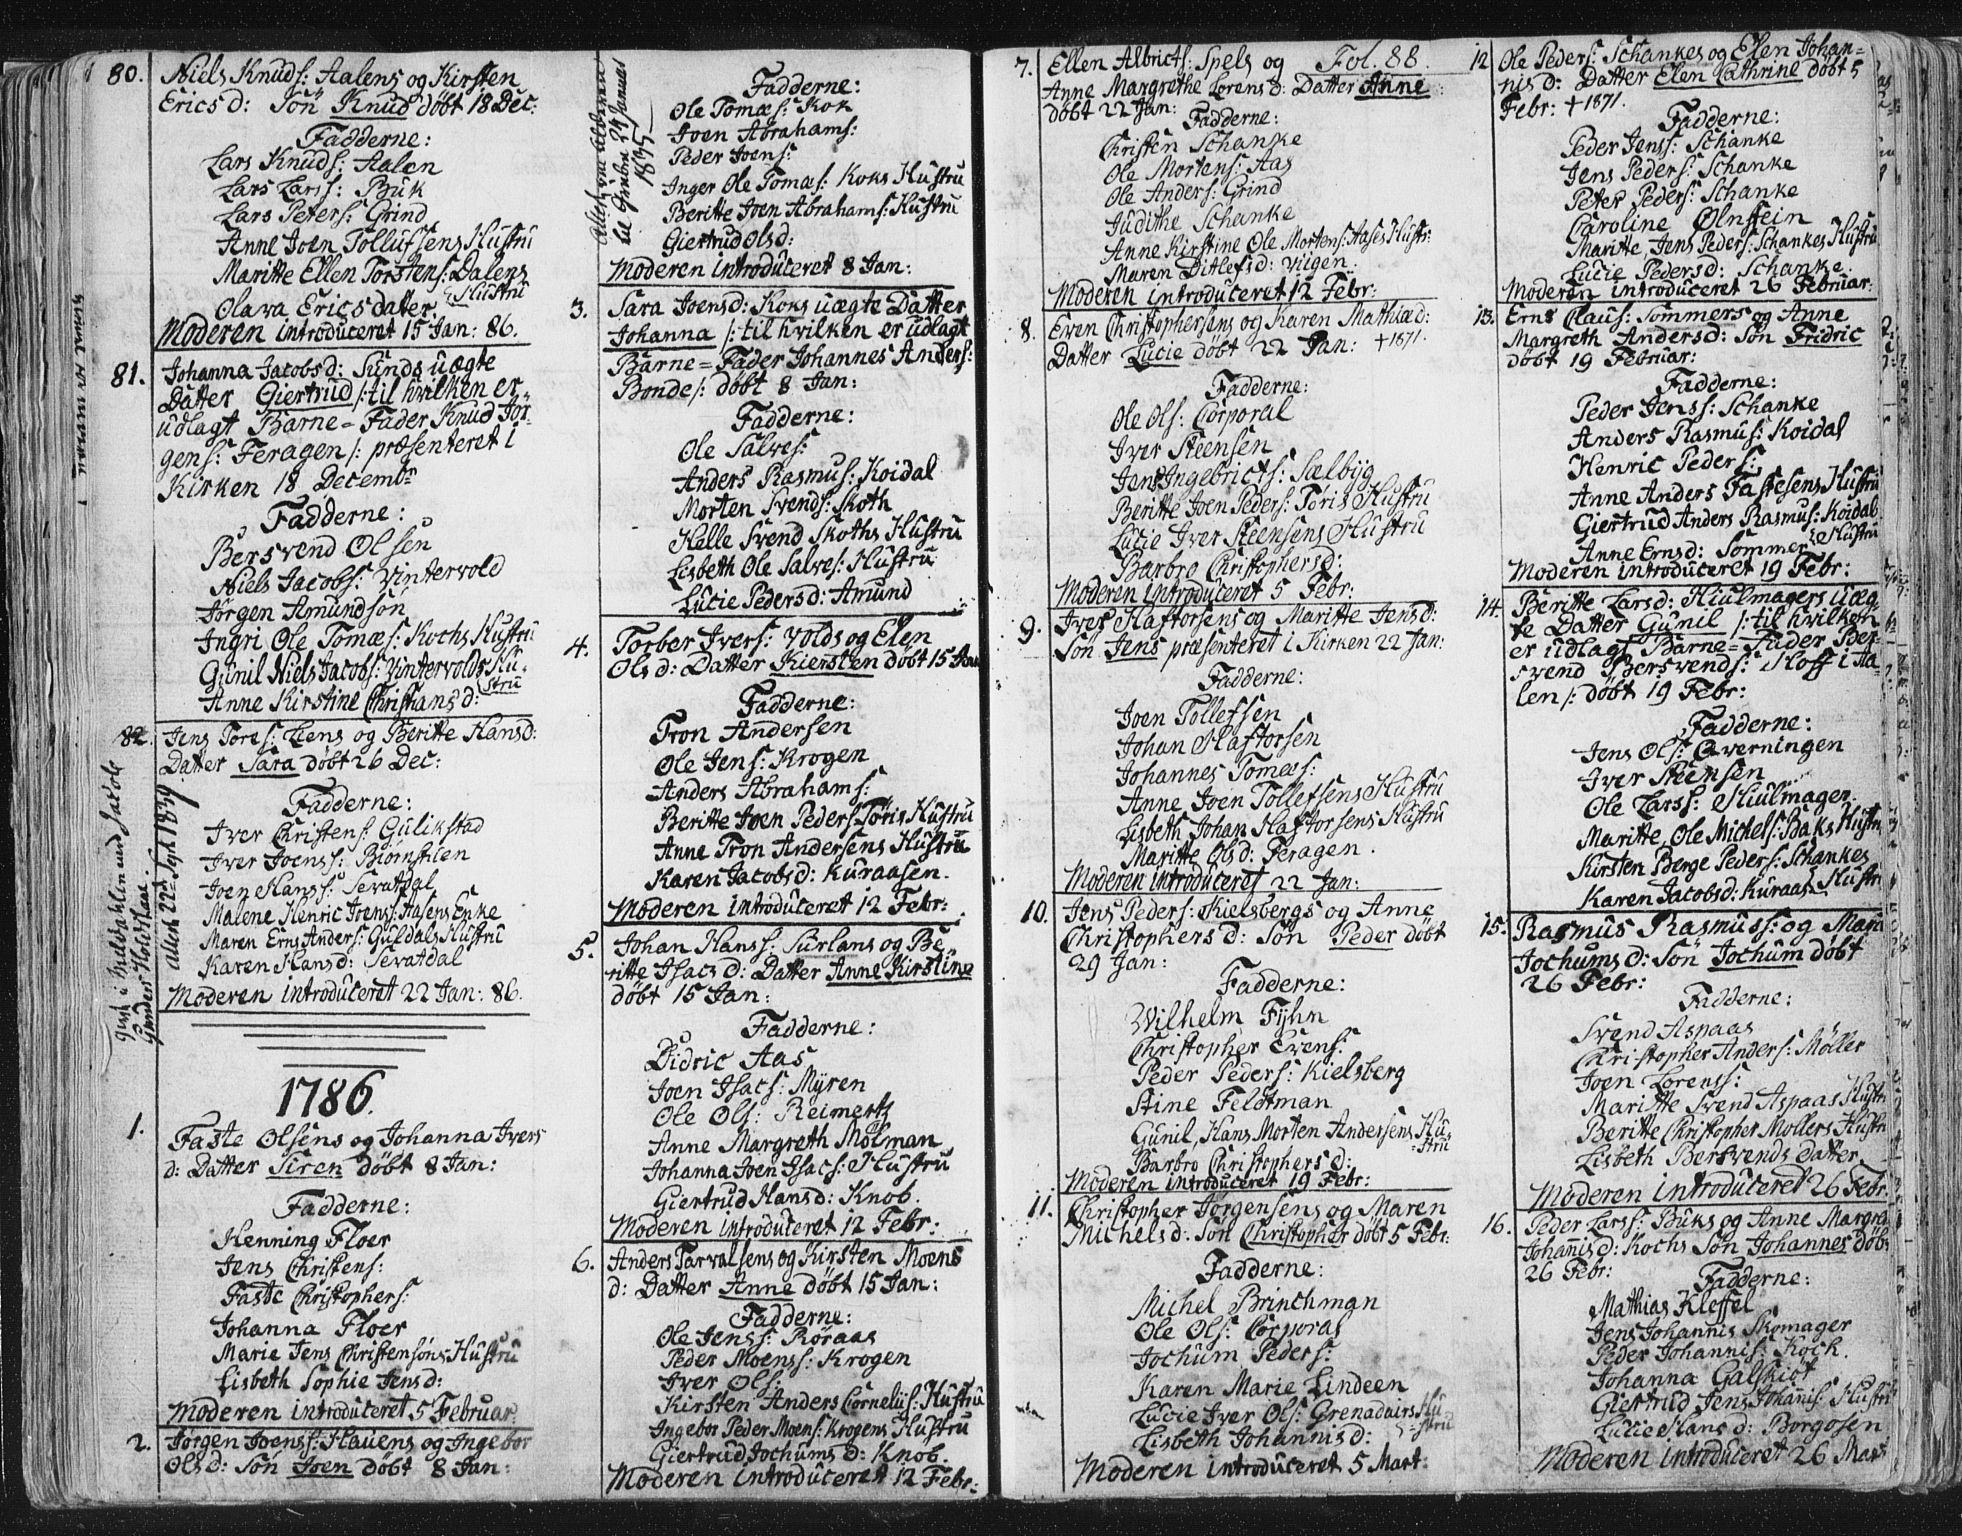 80. Niels Knuds: Aalens og Kirsten
Ericsd: Sön Knud döbt 18 Dec:
Fadderne:
Lars Knuds: Aalen
Lars Larss: Buk
Lars Peters: Grind
Anne Joen Tollufsens Hustru
Maritte Ellen Torstens: Dalens
Hustru
Olava Ericsdater
Moderen introduceret 15 Jan: 86.
81. Johanna Jacobsd: Sunds uægte
Datter Giertrud /: til hvilken er
udlagt Barne-Fader Knud Jör-
gens: Feragen :/ præsenteret i
Kirken 18 Decembr
Fadderne:
Bersvend Olsen
Niels Jacobs: Vintervold
Jörgen Amundsön
Ingri Ole Tomæs: Kochs Hustru
Gunil Niels Jacobs: Vintervolds Hu-
stru
Anne Kirstine Christiansd:
82. Jens Tores: Liens og Beritte Hansd:
Datter Sara döbt 26 Dec:
Fadderne:
Iver Christens: Gulikstad
Iver Joenss: Biörnstien
Joen Hanss: Sevatdal
Malene Henric Joens: Aasens Enke
Maren Erns Anders: Guldals Hustru
Karen Hansd: Sevatdal
Moderen introduceret 22 Jan: 86.
1786.
1. Faste Olsens og Johanna Ivers
d: Datter Siren döbt 8 Jan:
Fadderne:
Henning Floer
Jens Christens:
Faste Christophers:
Johanna Floer
Marie Jens Christensöns Hustru
Lisbeth Sophie Jensd:
Moderen introduceret 5 Februar.
2. Jörgen Joenss: Hauens og Ingebor
Olsd: Sön Joen döbt 8 Jan:
1835
Fadderne:
Ole Tomæs: Kok
Joen Abrahams:
Peder Joens:
Inger Ole Tomæs: Koks Hustru
Beritte Joen Abrahams: Hustru
Giertrud Olsd:
Moderen introduceret 8 Jan:
3. Sara Joensd: Koks uægte Datter
Johanna /: til hvilken er udlagt
Barne-Fader Johannes Anders:
Bonde :/ döbt 8 Jan:
Fadderne:
Ole Salves:
Anders Rasmus: Koidal
Morten Svends: Skoth
Helle Svend Skoths Hustru
Lisbeth Ole Salves: Hustru
Lucie Pedersd: Amund
4. Torber Ivers: Volds og Elen
Olsd: Datter Kiersten döbt 15 Jan
Fadderne:
Tron Andersen
Ole Jens: Krogen
Anders Abrahams:
Beritte Joen Peders: Töris Hustru
Anne Tron Andersens Hustru
Karen Jacobsd: Kuraasen.
Moderen introduceret 12 Febr:
5. Johan Hanss: Surlans og Be-
ritte Isacsd: Datter Anne Kirstine
döbt 15 Jan:
Fadderne:
Didric Aas
Joen Isacs: Myren
Ole Ols: Reimertz
Anne Margreth Molman
Johanna Joen Isacs: Hustru
Giertrud Hansd: Knob.
Moderen introduceret 12 Febr:
6. Anders Tarvalsens og Kirsten Moens
d: Datter Anne döbt 15 Jan:
Fadderne:
Ole Jenss: Röraas
Peder Moenss: Krogen
Iver Ols:
Kirsten Anders Cornelijs: Hustru
Ingebor Peder Moens: Krogens Hustru
Giertrud Jochumsd: Knob
Moderen introduceret 12 Febr:
Fol. 88.
7. Ellen Albricts: Spels og
Anne Margrethe Lorensd: Datter Anne
döbt 22 Jan:
Fadderne:
Christen Schanke
Ole Mortens: Aas
Ole Anders: Grind
Judithe Schanke
Anne Kirstine Ole Mortens: Aases Hustr:
Maren Ditlefsd: Viigen
Moderen introduceret 12 Febr:
8. Even Christophersens og Karen Mathiæd:
Datter Lucie döbt 22 Jan: +1871.
Fadderne:
Ole Ols: Corporal
Iver Steensen
Jens Ingebricts: Sælbyg
Beritte Joen Peders: Töris Hustru
Lucie Iver Steensens Hustru
Barbro Christophersd:
Moderen introduceret 5 Febr:
9. Iver Haftorsens og Maritte Jensd:
Sön Jens præsenteret i Kirken 22 Jan:
Fadderne:
Joen Tollefsen
Johan Haftorsen
Johannes Tomæs:
Anne Joen Tollefsens Hustru
Lisbeth Johan Haftorsens Hustru
Maritte Olsd: Feragen.
Moderen introduceret 22 Jan:
10. Jens Peders: Kielsbergs og Anne
Christophersd: Sön Peder döbt
29 Jan:
Fadderne:
Wilhelm Fyhn
Christopher Evens:
Peder Peders: Kielsberg
Stine Feldtman
Gunil Hans Morten Andersens Hu-
stru
Barbro Christophersd:
Moderen introduceret 19 Febr:
11. Christopher Jörgensens og Maren
Michelsd: Sön Christopher döbt 5 Febr:
Fadderne:
Michel Brinchman
Ole Ols: Corporal
Jochum Peders:
Karen Marie Lindeen
Lucie Iver Ols: Grenaduers Hu
stru
Lisbeth Johannisd:
Moderen introduceret 5 Mart:
12 Ole Peders: Schankes og Elen Johan-
nisd: Datter Elen Cathrine döbt 5
Febr: +1871.
Fadderne:
Peder Jenss: Schanke
Jens Peders: Schanke
Peter Peders: Schanke
Caroline Olnstein
Maritte Jens Peders: Schankes Hustru
Lucie Pedersd: Schanke.
Moderen introduceret 26 Februar:
13. Erns Claus: Sommers og Anne
Margreth Andersd: Sön Fridric
döbt 19 Februar:
Fadderne:
Peder Jenss: Schanke
Anders Rasmus: Koidal
Henric Peders:
Anne Anders Fastesens Hustru
Giertrud Anders Rasmus: Koidals
Hustru
Anne Ernsd: Sommer
Moderen introduceret 19 Febr:
14. Beritte Larsd: Hiulmagers uæg-
te Datter Gunil /: til hvilken
er udlagt Barne-Fader Ber-
svend Bersvends: Hoff i Aa-
len :/ döbt 19 Febr:
Fadderne:
Jens Ols: Qverningen
Iver Steensen
Ole Larss: Hiulmager.
Maritte Ole Michels: Baks Hustru
Kirsten Berge Peders: Schankes
Hustru
Karen Jacobsd: Kuraas
15. Rasmus Rasmuss: og Mari
Jochumsd: Sön Jochum döbt
26 Febr:
Fadderne:
Svend Aspaas
Christopher Anders: Möller
Joen Lorenss:
Maritte Svend Aspaas Hustr
Beritte Christopher Mollers Hustru
Lisbeth Bersvends Datter
Moderen introduceret 26 Febr.
16. Peder Larss: Buks og Anne Margre
Johannisd: Kochs Sön Johannes döbt
26 Febr:
Fadderne:
Mathias Kleffel
Jens Johannis Skomager
Peder Johannis: Kock.
Johanna Galskiöt
Giertrud Jens Johannis: Hustru
Lucie Hansd: Borgosen
Moderen introduceret 26 Mart